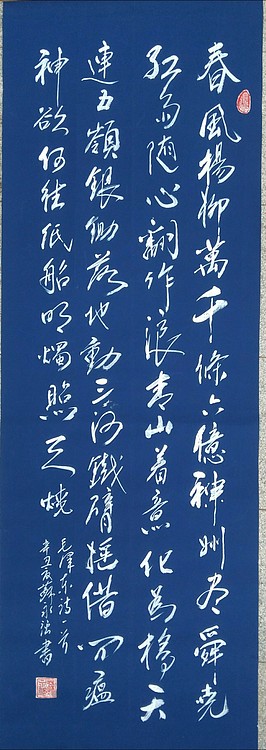 春風楊柳萬千條六億神州尽舜堯
紅雨随心翻作浪青山着意化為橋天
連五嶺銀鋤落地動三河鐵臂摇借问瘟
神欲何往紙船明燭照天燒
毛澤東詩一首
辛丑夏蘇永強書